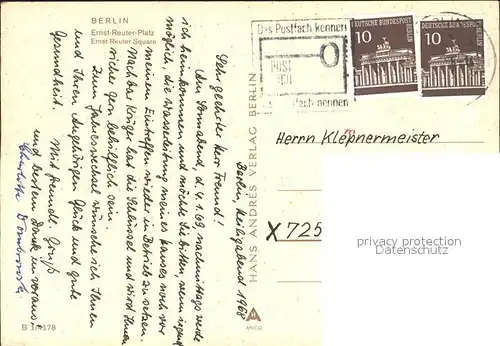 BERLIN
Ernst-Reuter-Platz
Ernst Reuter Square
Berlin, Heiligabend 1968
Sehr geehrter Herr Freund!
Am Sonnabend, d. 4.1.69 nachmittags werde
ich heimkommen und möchte Sie bitten, wenn irgend
möglich, die Wasserleitung meines Hauses noch vor
meinem Eintreffen wieder in Betrieb zu setzen.
Nachbar Krüger hat die Schlüssel und wird Ihnen
sicher gern behilflich sein.
Zum Jahreswechsel wünsche ich Ihnen
und Ihren Angehörigen Glück und gute
Gesundheit.
Mit freundl. Gruß
und bestem Dank im voraus
Charlotte
B 1/9178
HANS ANDRES VERLAG BERLIN
ANCO
Das Postfach kennen
POST
das Postfach nennen
DEUTSCHE BUNDESPOST
BERLIN
10
DEUTSCHE BUNDESPOST
BERLIN
10
Herrn Klempnermeister
X 725
privacy protection
Datenschutz